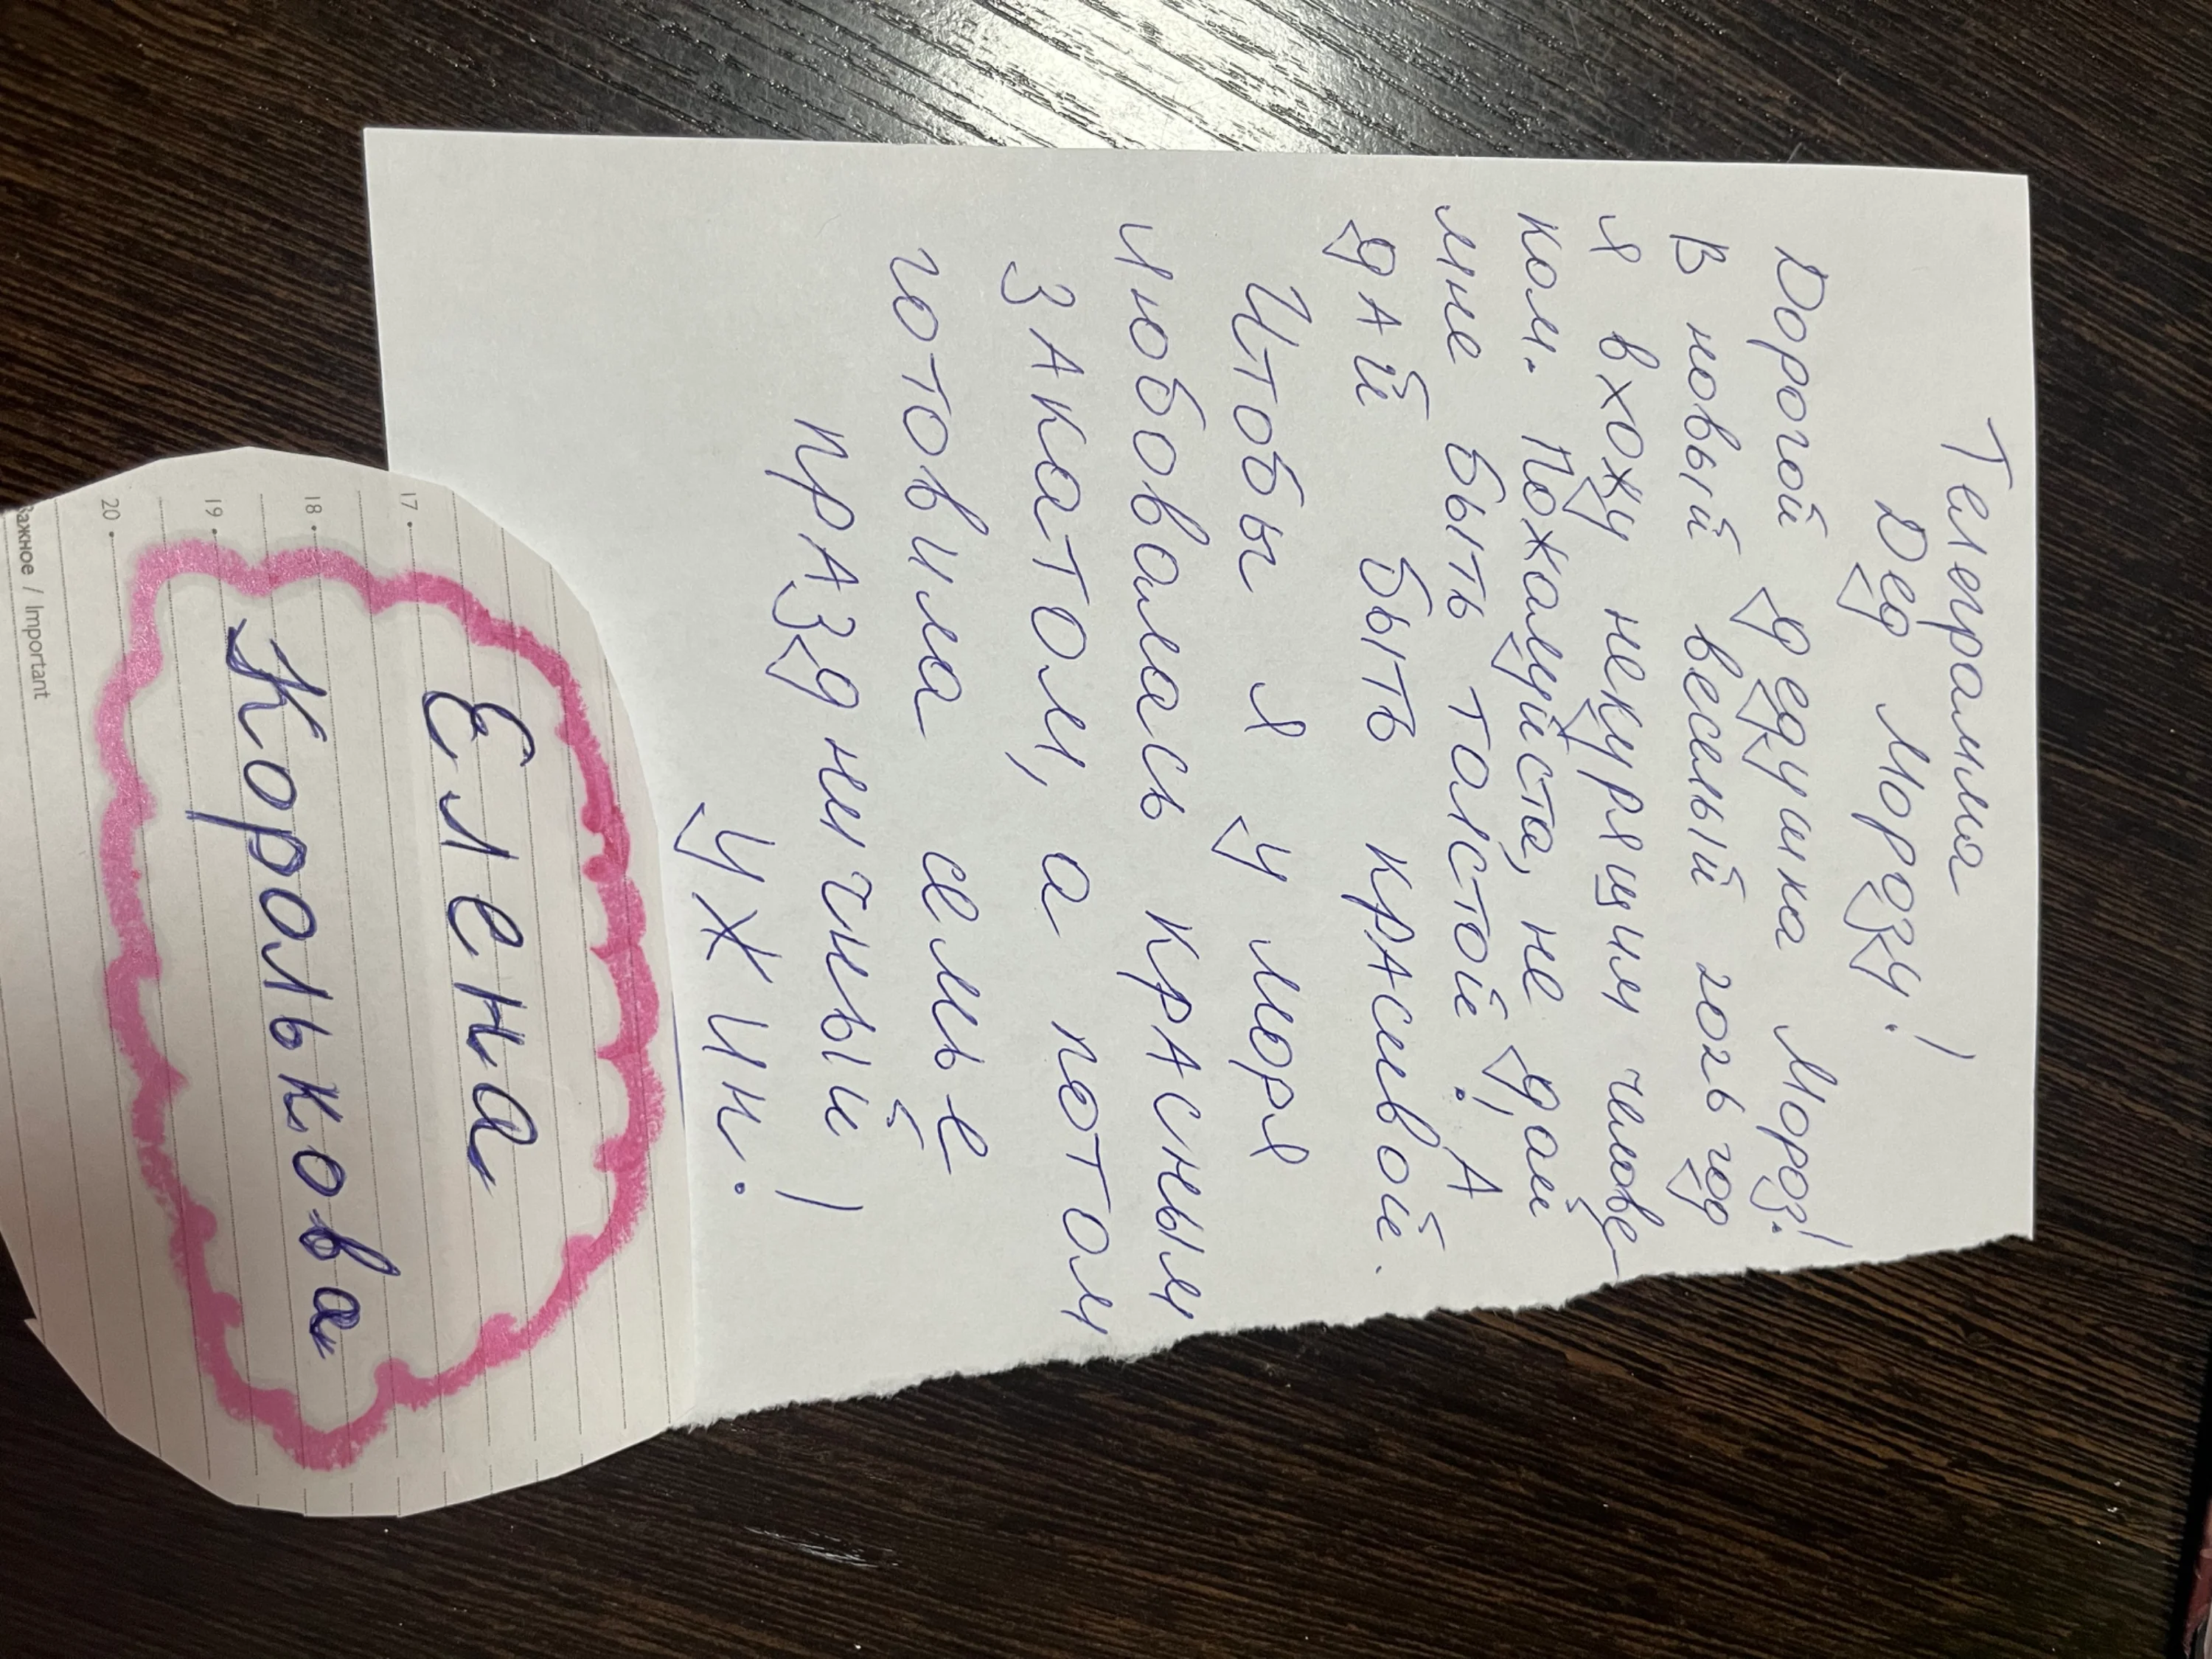 Телеграмма
Дед Морозу!
Дорогой дедушка Мороз!
В новый веселый год
я вхожу некурящим челове
ком. Пожалуйста, не дай
мне быть толстой! А
дай быть красивой.
Чтобы я у моря
любовалась красным
закатом, а потом
готовила семье
праздничный
ужин!
Елена
Королькова
17
18
19
20
Важное / Important